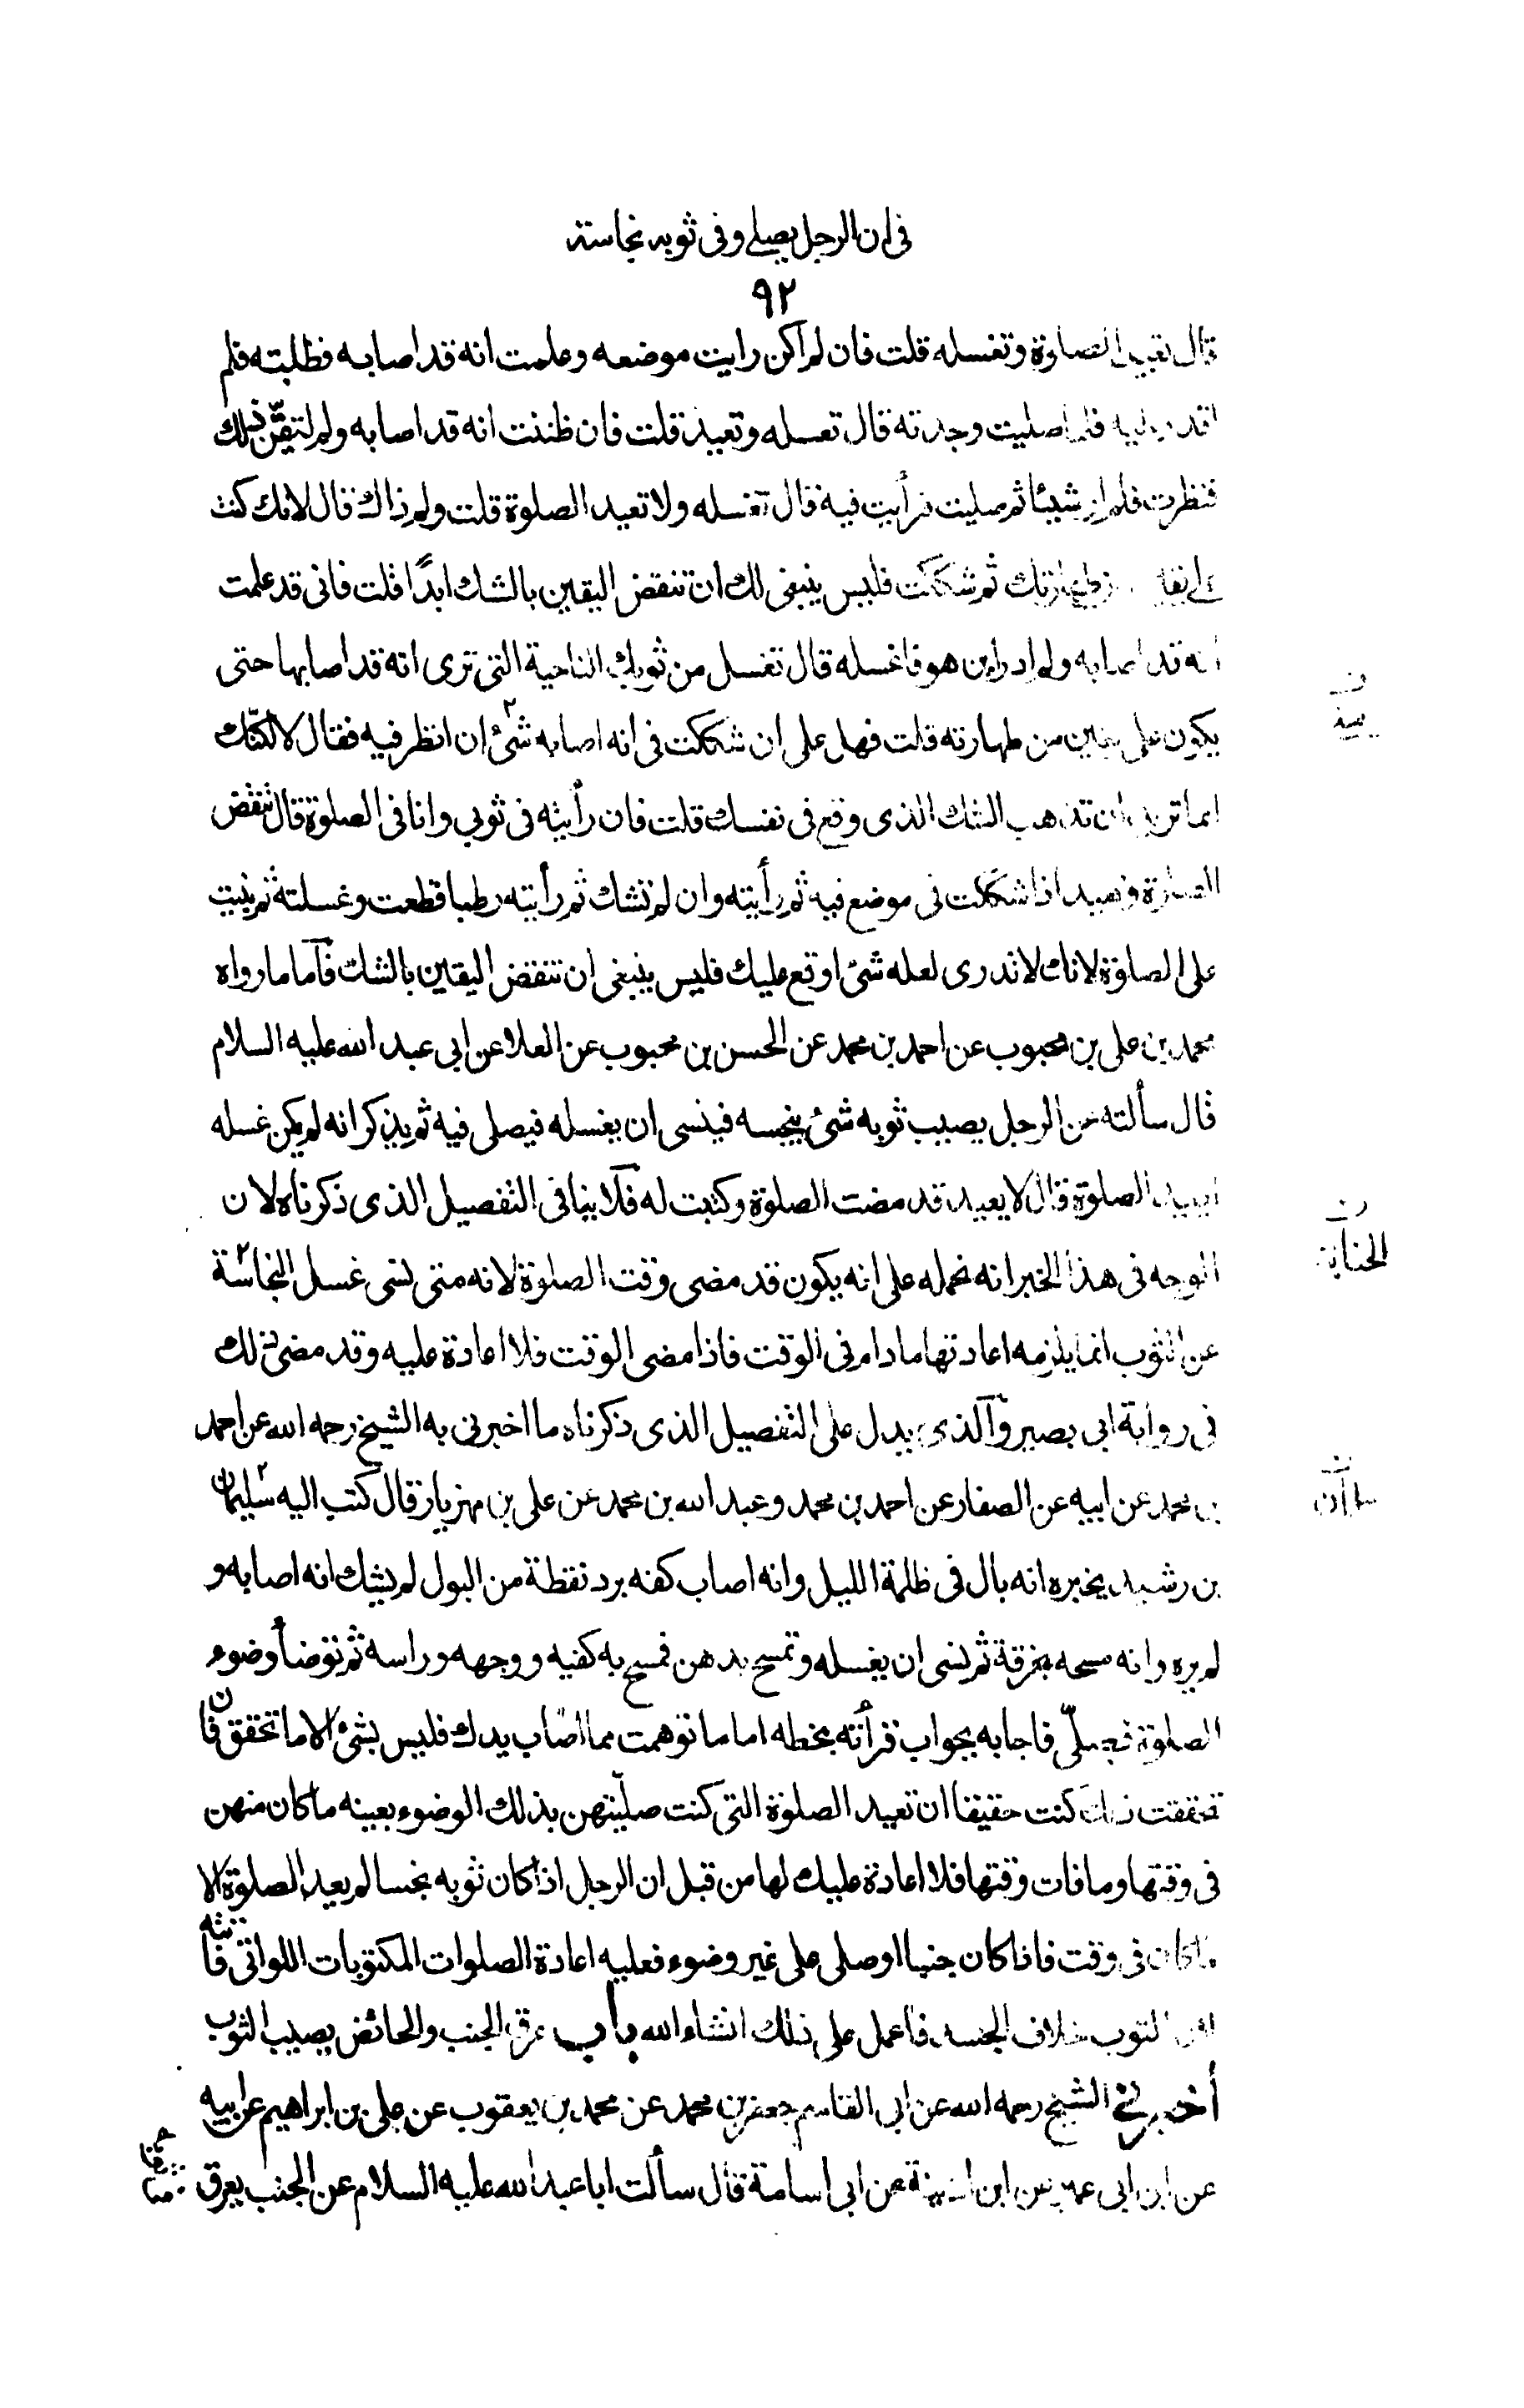 فى ان الرجل يصلى وفى ثوبه نجاسة
٩٢
قال تعيد الصلوة وتغسله قلت فان لم اكن رايت موضعه وعلمت انه قد اصابه فظلبته فلم
اقدر عليه فلما صليت وجدته قال تغسله وتعيد قلت فان ظننت انه قد اصابه ولم اتيقّن ذلك
فنظرت فلم ار شيئا ثم صليت فرأيت فيه قال تغسله ولا تعيد الصلوة قلت ولم ذاك قال لانك كنت
على يقين من طهارتك ثم شككت فليس ينبغى لك ان تنقض اليقين بالشك ابدًا قلت فانى قد علمت
انه قد اصابه ولم ادر اين هو فاغسله قال تغسل من ثوبك الناحية التى ترى انه قد اصابها حتى
يكون على يقين من طهارته قلت فهل على ان شككت فى انه اصابه شئ ان انظر فيه فقال لا لكنّك
انما تريد ان تذهب الشك الذى وقع فى نفسك قلت فان رأيته فى ثوبى وانا فى الصلوة قال تنقض
الصلوة وتعيد اذا شككت فى موضع فيه ثم رأيته وان لم تشك ثم رأيته رطبا قطعت وغسلته ثم بنيت
على الصلوة لانك لا تدرى لعله شئ اوقع عليك فليس ينبغى ان تنقض اليقين بالشك فاما ما رواه
محمد بن على بن محبوب عن احمد بن محمد عن الحسن بن محبوب عن العلا عن ابى عبد الله عليه السلام
قال سألته عن الرجل يصيب ثوبه شئ ينجسه فينسى ان يغسله فيصلى فيه ثم يذكر انه لم يكن غسله
ايعيد الصلوة قال لا يعيد قد مضت الصلوة وكتبت له فلا ينافى التفصيل الذى ذكرناه لان
الوجه فى هذا الخبر انه نحمله على انه يكون قد مضى وقت الصلوة لانه متى نسى غسل النجاسة
عن الثوب انما يلزمه اعادتها ما دام فى الوقت فاذا مضى الوقت فلا اعادة عليه وقد مضى ذلك
فى رواية ابى بصير والذى يدل على التفصيل الذى ذكرناه ما اخبرنى به الشيخ رحمه الله عن احمد
بن محمد عن ابيه عن الصفار عن احمد بن محمد وعبد الله بن محمد عن على بن مهزيار قال كتب اليه سليمان
بن رشيد يخبره انه بال فى ظلمة الليل وانه اصاب كفه برد نقطة من البول لم يشك انه اصابه و
لم يره وانه مسحه بخرقة ثم نسى ان يغسله وتمسح بدهن فمسح به كفيه ووجهه وراسه ثم توضأ وضوء
الصلوة فصلّى فاجابه بجواب قرأته بخطه اما ما توهمت مما اصاب يدك فليس بشئ الا ما تحقق فان
تحققت ذلك كنت حقيقا ان تعيد الصلوة التى كنت صليتهن بذلك الوضوء بعينه ما كان منهن
فى وقتها وما فات وقتها فلا اعادة عليك لها من قبل ان الرجل اذا كان ثوبه نجسا لم يعد الصلوة الا
ما كان فى وقت فاذا كان جنبا او صلى على غير وضوء فعليه اعادة الصلوات المكتوبات اللواتى فاتته
لان الثوب خلاف الجسد فاعمل على ذلك انشاء الله باب عرق الجنب والحائض يصيب الثوب
أخبرنى الشيخ رحمه الله عن ابى القاسم جعفر بن محمد عن محمد بن يعقوب عن على بن ابراهيم عن ابيه
عن ابن ابى عمير عن ابن اذينة عن ابى اسامة قال سألت ابا عبد الله عليه السلام عن الجنب يعرق
الجنابة